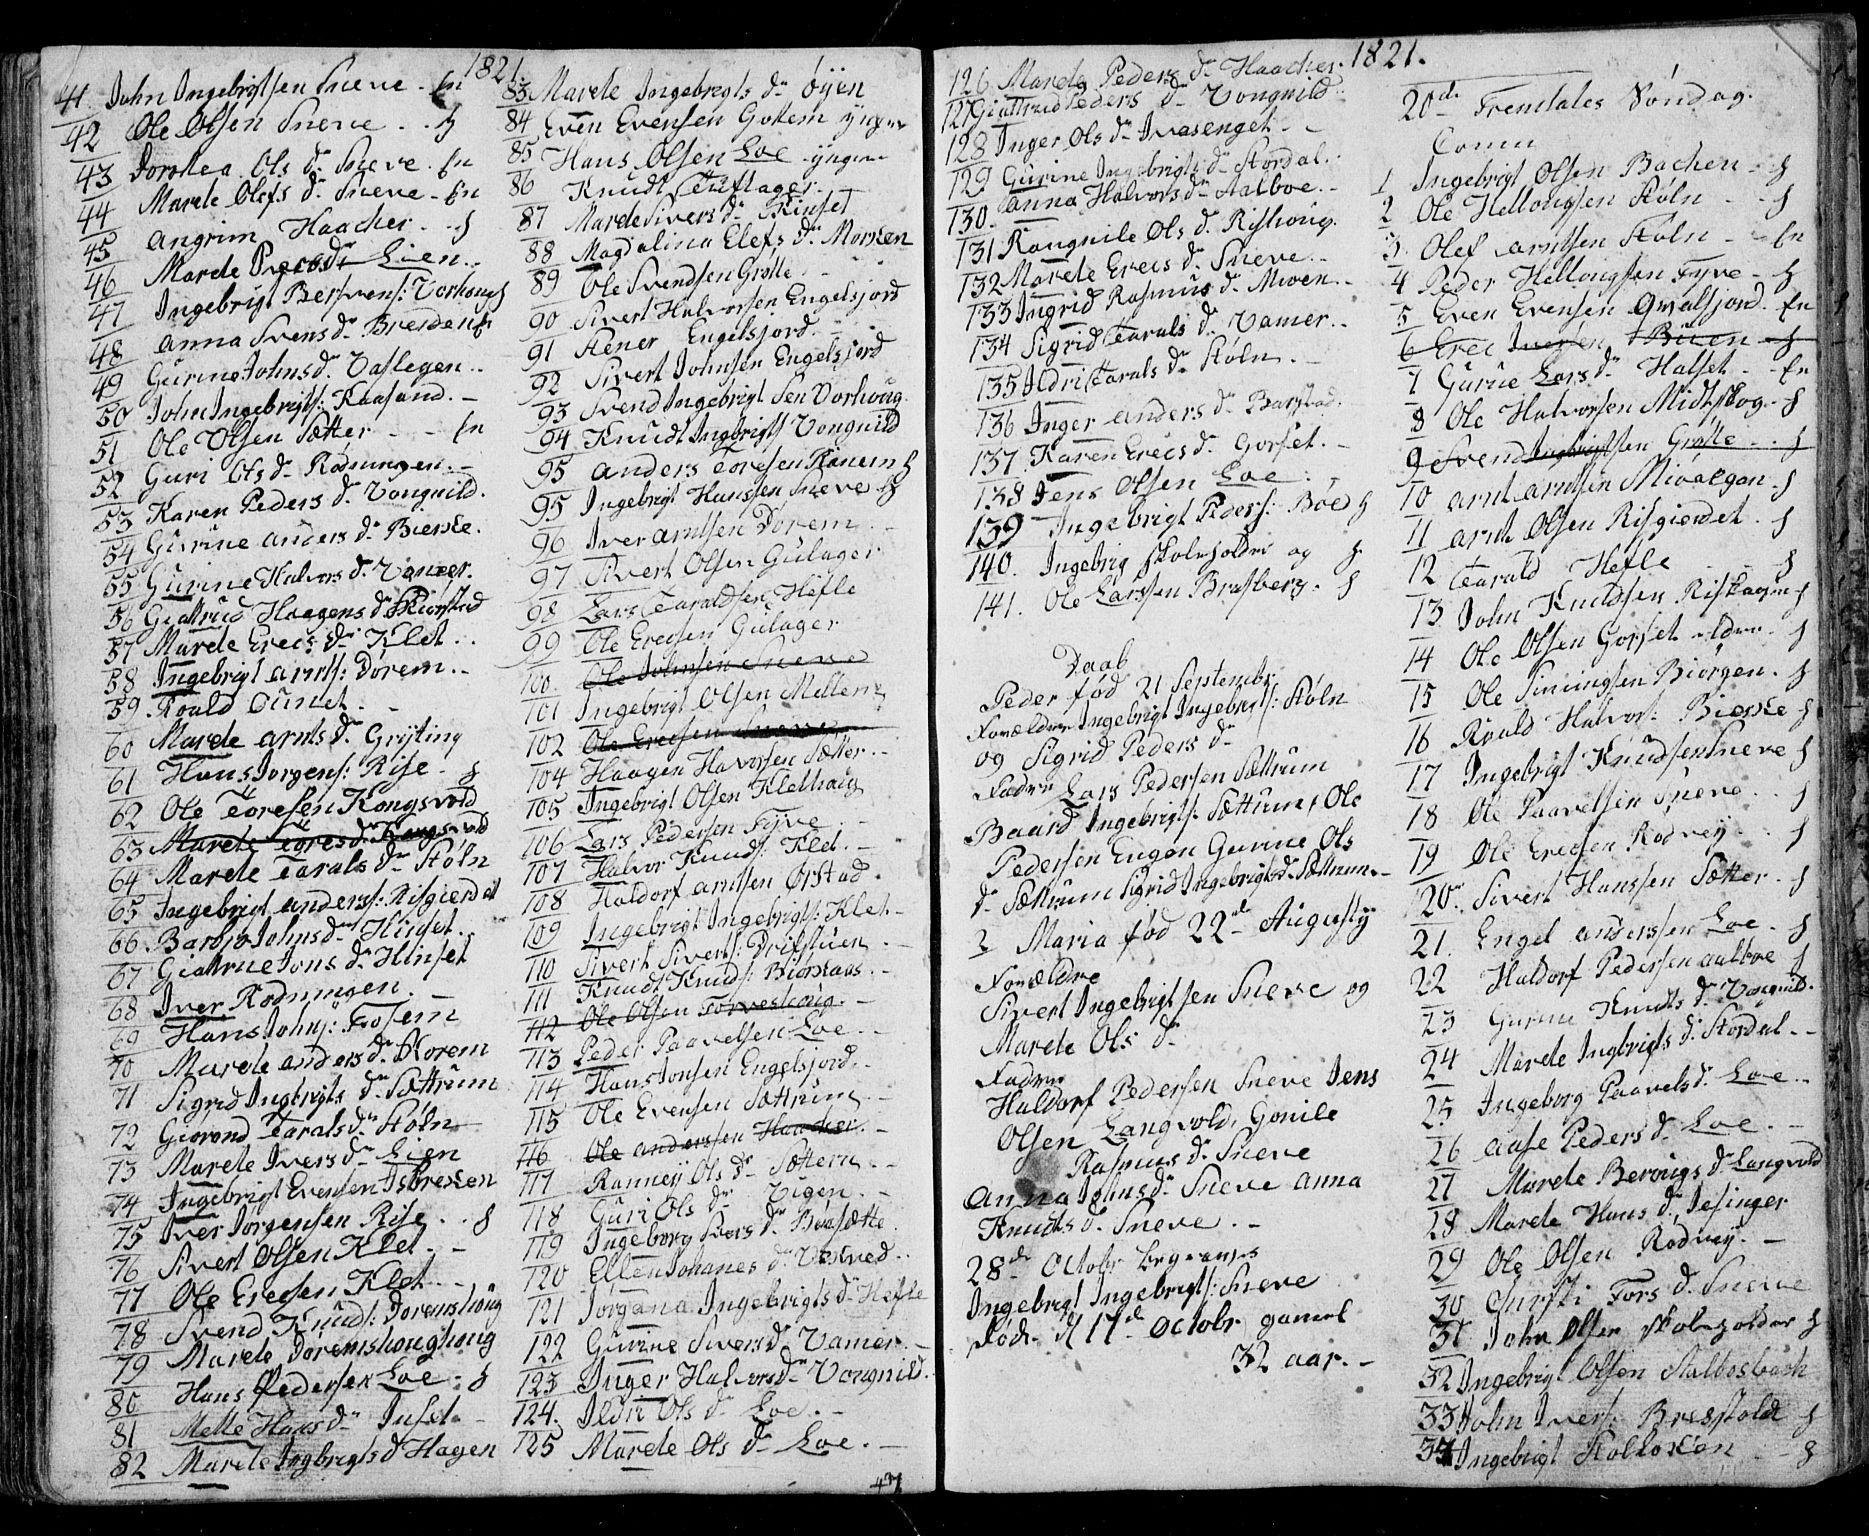 1821
41. John Ingebrigtsen Sneve - En
42 Ole Olsen Sneve . . H
43 Dorthea Ols dr Sneve . En
44 Marete Olefs dr Sneve - En
45 Angrim Haacker . . H
46 Marete Pers dr Lien . .
47 Ingebrigt Bersvens: Vorhoug
48 Anna Svens dr En
49 Gurine Johns dr Vaslegen . .
50 John Ingebrigts: Kaasand . -
51 Ole Olsen Sætter - - En
52 Guri Ols dr Rodningen . -
53 Karen Peders dr Vongnild .
54 Gurine Anders dr Bierke .
55 Gurine Halvors dr Vamer .
56 Giattrud Haagens dr
57 Marete Erecs dr Klet . .
58 Ingebrigt Arnts: Dorem . -
59 Roald . -
60 Marete Arnts dr Grijting
61 Hans Jorgens: Rise - H
62 Ole Toresen Kongsvold
63 Marete Tores dr Kongsvold
64 Marete Tarals dr Støln
65 Ingebrigt Anders: Risgierdet
66 Johns dr Hinset . .
67 Jons dr Hinset
68 Iver Rodningen . -
69 Hans Johns: Fosem
70 Marete Anders dr Horem
71 Sigrid Ingbrigts dr Sættrum
72 Gorond Tarals dr Støln
73 Marete Ivers dr Lien
74 Ingebrigt Evensen Isbrecken
75 Iver Jorgensen Rise . . H
76 Sivert Olsen Klet . -
77 Ole Erecsen Klet . -
78 Svend Knuds: Doremshoug
79 Marete Doremshoughoug
80 Hans Pedersen Loe - H
81 Mette Hans dr Inset -
82 Marete Ingbrigts d Hagen
83 Marete Ingebregts dr Øyen
84 Even Evensen Gottem yngre
85 Hans Olsen Loe - yngre
86 Knudt .
87 Marete Sivers dr Rinset
88 Magdalina Elefs dr Morken
89 Ole Svendsen Grøtte . -
90 Sivert Halvorsen Engelsjord
91 Stener Engelsjord . -
92 Sivert Johnsen Engelsjord
93 Svend Ingebrigtsen Vorhoug
94 Knudt Ingbrigts Vongnild
95 Anders Toresen Ranem H
95 Ingebrigt Hanssen Sneve H
96 Iver Arntsen Dorem . -
97 Sivert Olsen Gulager
98 Lars Taraldsen Hefle
99 Ole Erecsen Gulager
100 Ole Johnsen Sneve
101 Ingebrigt Olsen Mellem
102 Ole Erecsen Sneve
104 Haagen Halvorsen Sætter . -
105 Ingebrigt Olsen Klethaug
106 Lars Pedersen Fyve . -
107 Halvor Knuds: Klet . -
108 Haldorf Arntsen Ørstad .
109 Ingebrigt Ingebrigts: Klet -
110 Sivert Sivers: Drifstuen . -
111 Knudt Knuds: . -
112 Ole Olsen Torveshoug . -
113 Peder Paavelsen Loe . -
114 Hans Jonsen Engelsjord . -
115 Ole Evensen Sættrum . -
116 Ole Anderssen Haacker . -
117 Ranney Ols dr Sættern . -
118 Guri Ols dr Vigen . -
119 Ingeborg Ivers dr
120 Ellen Johanes dr . .
121 Jorgana Ingebrigts dr Hefle
122 Gurine Sivers dr Vamer . -
123 Inger Halvors dr Vongnild .
124. Ildri Ols dr Loe . -
125 Marete Ols dr Loe . -
47
1821.
126 Marete Peders dr Haacker .
127 Giattrud Peders dr Vongnild
128 Inger Ols dr Ivasenget . -
129 Gurine Ingebrigts dr Stordal . .
130. Anna Halvors dr Aalboe . -
131 Rangnile Ols dr Rishoug .
132 Marete Erecs dr Sneve . -
133 Ingrid Rasmus dr Moen . -
134 Sigrid Tarals dr Vamer . -
135 Ildri Tarals dr Støln . -
136 Inger Anders dr Barstad .
137. Karen Erecs dr Gorset . -
138 Jens Olsen Loe .
139 Ingebrigt Peders: Boe H
140. Ingebrig skoleholder og H
141. Ole Larssen Bratberg . H
Daab
Peder fød 21 Septembr
Forældre Ingebrigt Ingebrigts: Støln
og Sigrid Peders dr
Fadere Lars Pedersen Sættrum
Baard Ingebrigts: Sættrum, Ole
Pedersen Engen Gurine Ols
dr Sættrum Sigrid Ingebrigts dr Sættrum . -
2 Maria fød 22de Augusty
Forældre
Sivert Ingebrigtsen Sneve og
Marete Ols dr
Fadere
Haldorf Pedersen Sneve Jens
Olsen Langvold, Gonile
Rasmus dr Sneve
Anna Johns dr Sneve Anna
Knudts dr Sneve . -
28de Octobr begraves
Ingebrigt Ingebrigts: Sneve
død d 17de Octobr gamel
32 aar . -
20de Tremtales Søndag .
Comm
1 Ingebrigt Olsen Bachen - H
2 Ole Hellougsen Støln - . H
3. Olef Arntsen Støln - - En
4 Peder Hellougsen Fyve - H
5 Even Evensen Qvalsjord . En
6 Erec Iversen Buen H
7 Gurue Lars dr Halset - En
8 Ole Halvorsen Midtskog - H
9 Svend Ingbrigtsen Grøtte . . H
10 Arnt Arntsen Mioalgan - H
11 Arnt Olsen Risgierdet . H
12 Tarald Hefle - - H
13 John Knudsen H
14 Ole Olsen Gorset eldre . H
15 Ole Simingsen Biørgen . H
16 Roald Halvors: Bierke H
17 Ingebrigt Knudsen Sneve H
18 Ole Paavelsen Sneve . . H
19 Ole Erecsen Rodvey . . H
20. Sivert Hanssen Sætter . H
21. Engel Anderssen Loe . H
22 Haldorf Pedersen Aalboe H
23 Gurine Knudts dr Vongnild .
24 Marete Ingbrigts dr Stordal . -
25 Ingeborg Paavels dr Loe . -
26 Aase Peders dr Loe . -
27 Marete Berougs dr Langvold
28 Marete Hans dr Jesinger
29 Ole Olsen Rodvey . -
30 Fors dr Sneve
31 John Olsen skoleholder H
32 Ingebrigt Olsen Stalbosbach
33 John Ivers: H
34 Ingebrigt - H